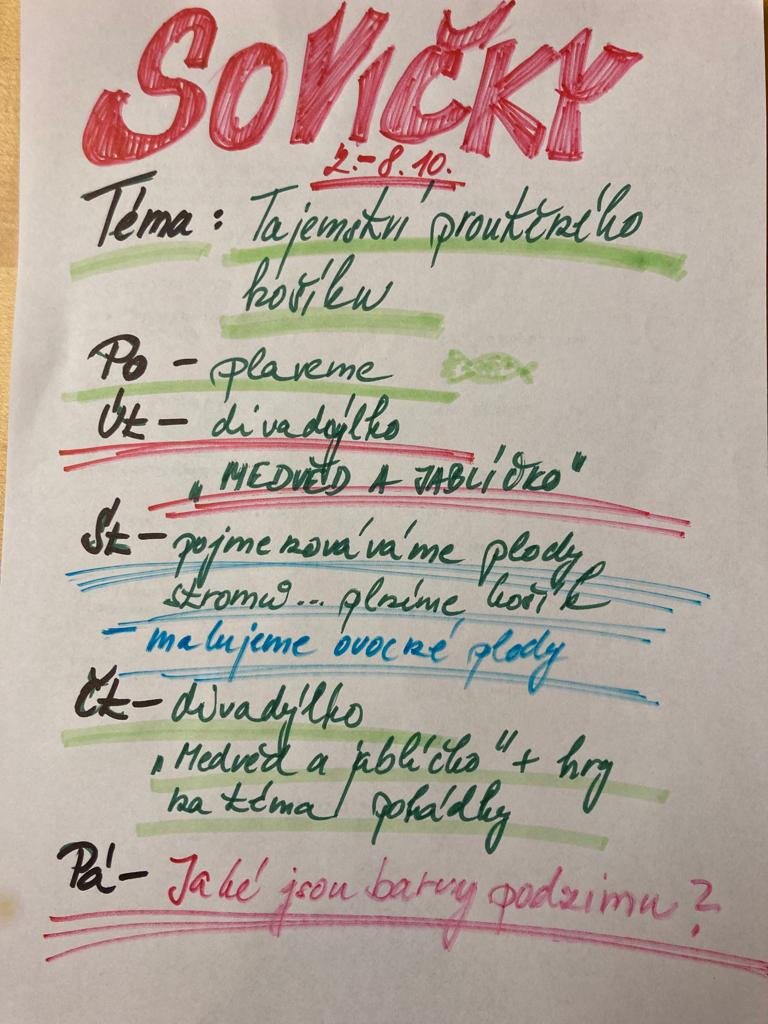 SOVIČKY
2.-8.10.
Téma: Tajemství proutěného
košíku
Po - plaveme
Út - divadýlko
„MEDVĚD A JABLÍČKO"
St - pojmenováváme plody
stromů... plníme košík
- malujeme ovocné plody
Čt - divadýlko
„Medvěd a jablíčko" + hry
na téma pohádky
Pá - Jaké jsou barvy podzimu?